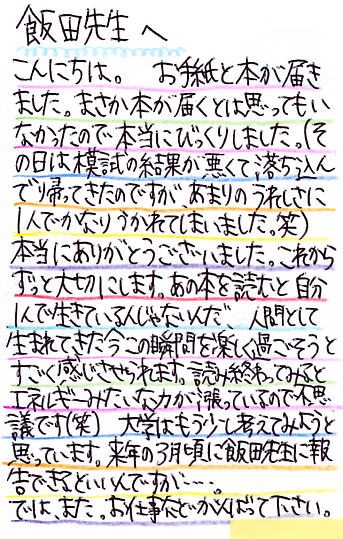 飯田先生へ
こんにちは。 お手紙と本が届き
ました。まさか本が届くとは思ってもい
なかったので本当にびっくりしました。(そ
の日は模試の結果が悪くて落ち込ん
で帰ってきたのですがあまりのうれしさに
1人でかなりうかれてしまいました。笑)
本当にありがとうございました。これから
ずっと大切にします。あの本を読むと自分
1人で生きているんじゃないんだ、人間として
生まれてきた今この瞬間を楽しく過ごそうと
すごく感じさせられます。読み終わってみると
エネルギーみたいな力が漲っているので不思
議です(笑) 大学はもう少し考えてみようと
思っています。来年の3月頃に飯田先生に報
告できるといいんですが…。
では、また。お仕事などがんばって下さい。